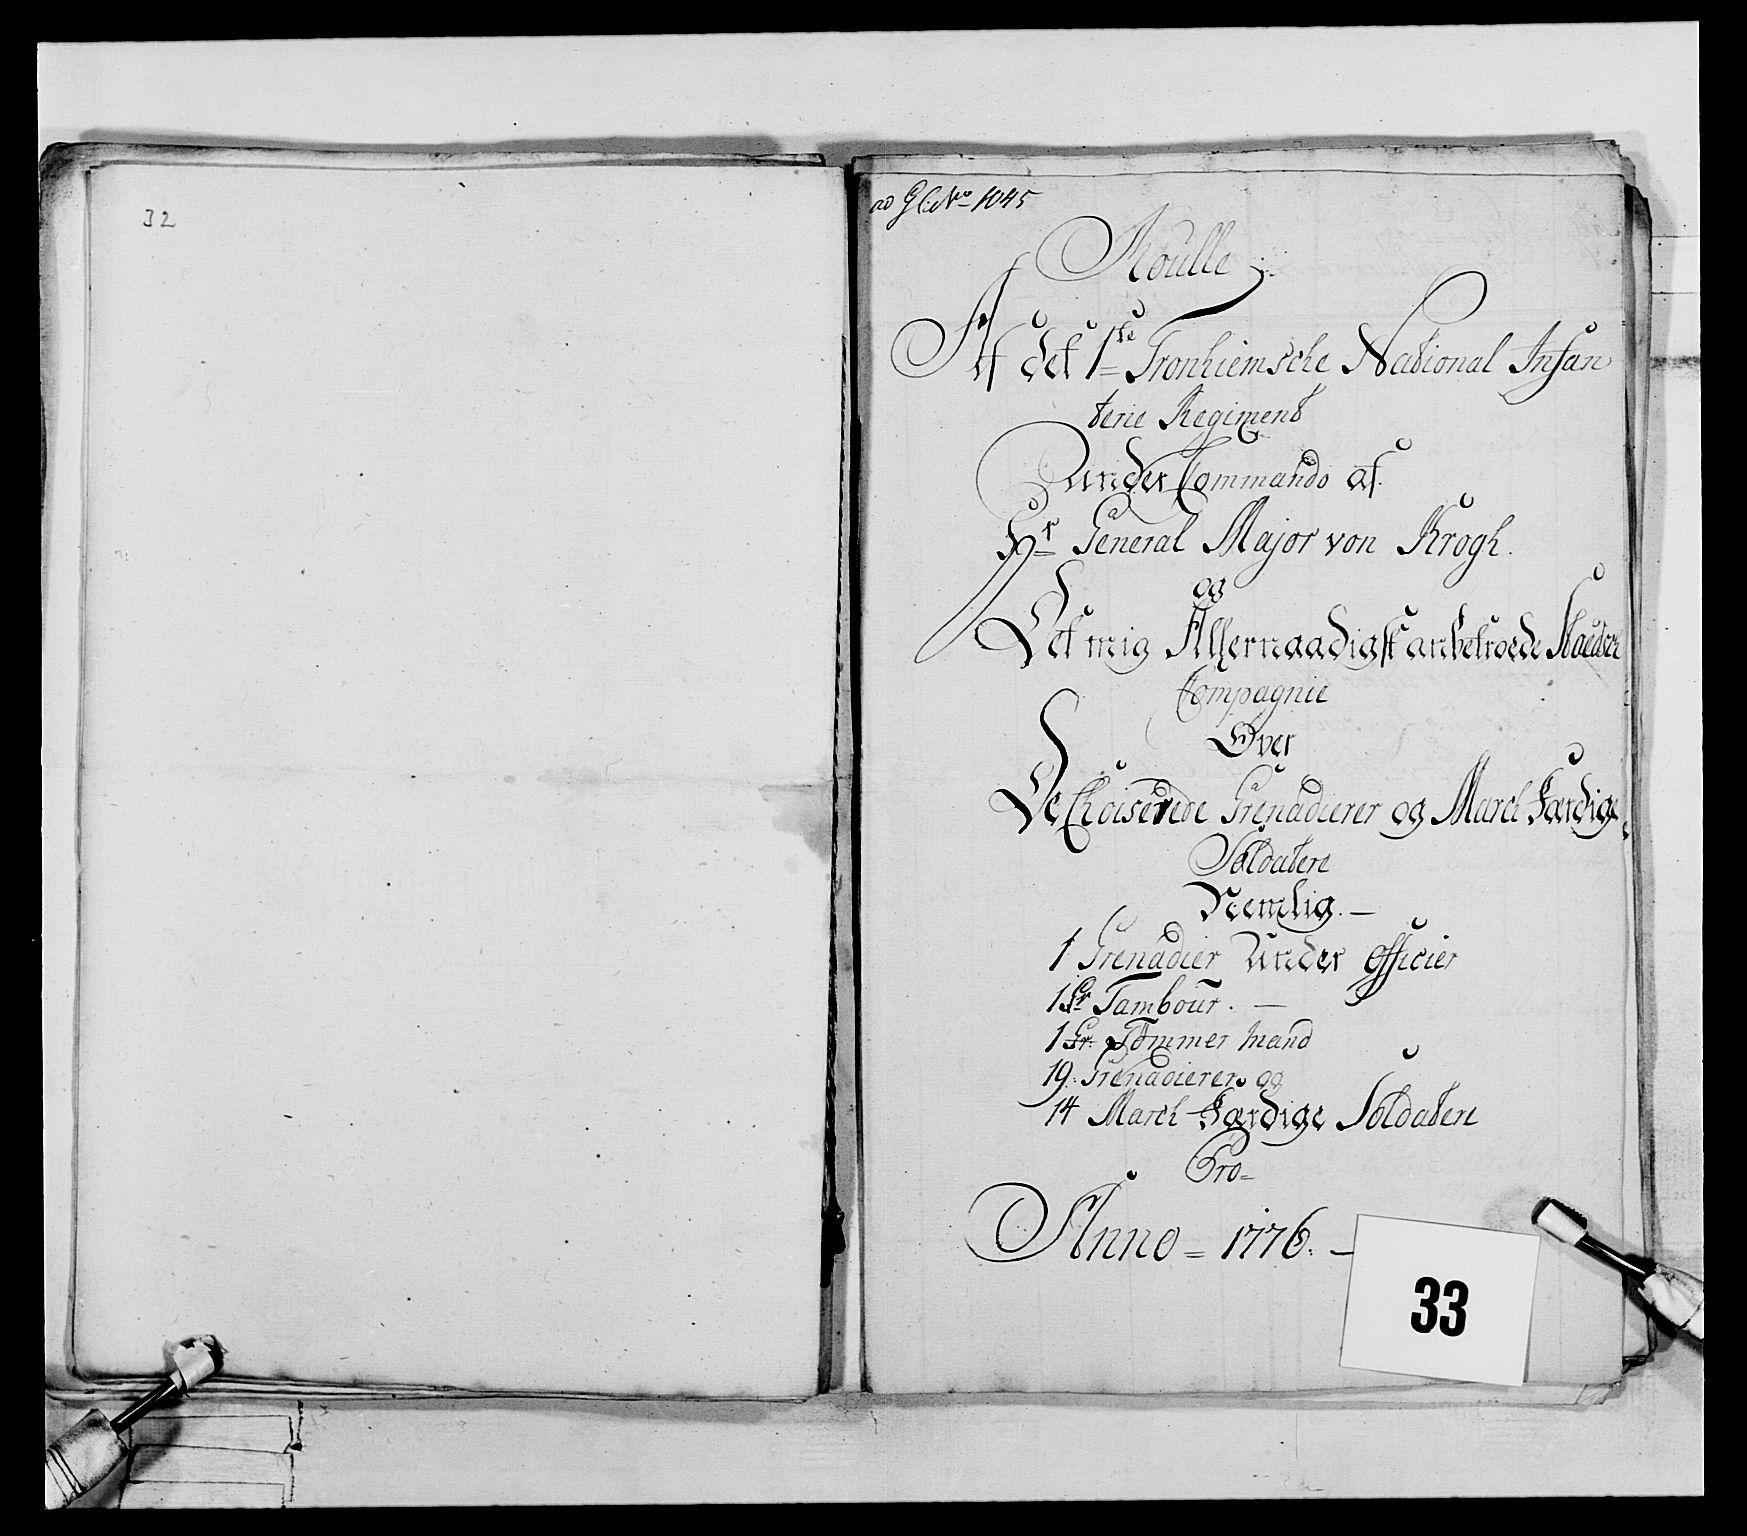 32
ad Gl: No 1045
Roulle
Af det 1ste Tronhiemsche National Infan
terie Regiment
under Commando af
Hr General Major von Krogh.
og
Det mig Allernaadigst anbetroede
Compagnie
Over
De Choiserede Grenadierer og March færdige
Soldatere
Nemlig. —
1 Grenadier Under Officier
1 Gr Tambour. —
1 Gr. Tømmer mand
19: Grenadierer og
14 March færdige Soldatere
Pro=
Anno = 1776. —
33